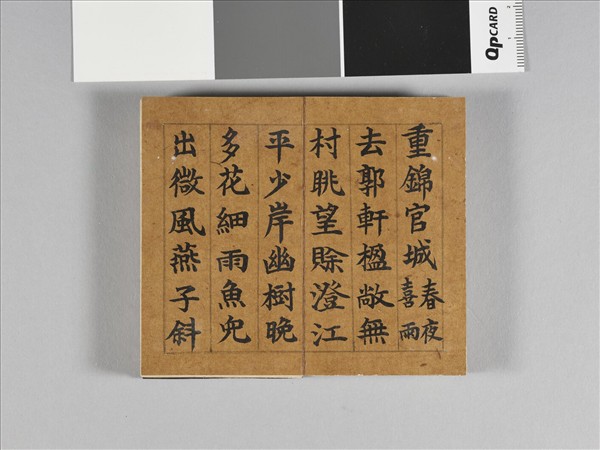 重錦官城春夜喜雨
去郭軒楹敞無
村眺望賒澄江
平少岸幽樹晚
多花細雨魚兒
出微風燕子斜
QpCARD